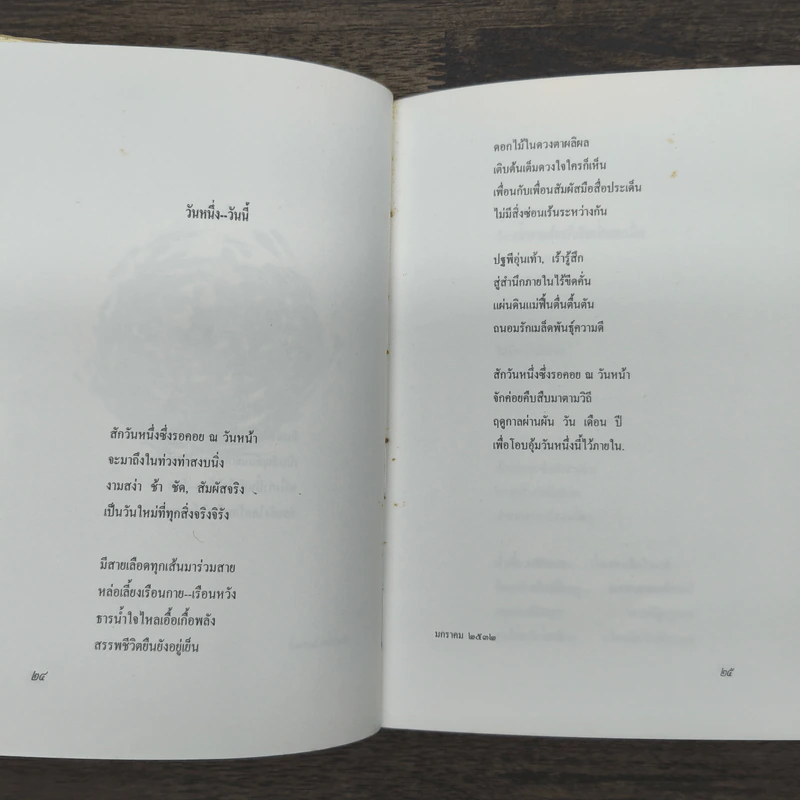 วันหนึ่ง--วันนี้
สักวันหนึ่งซึ่งรอคอย ณ วันหน้า
จะมาถึงในท่วงท่าสงบนิ่ง
งามสง่า ช้า ชัด, สัมผัสจริง
เป็นวันใหม่ที่ทุกสิ่งจริงจิรัง
มีสายเลือดทุกเส้นมาร่วมสาย
หล่อเลี้ยงเรือนกาย--เรือนหวัง
ธารน้ำใจไหลเอื้อเกื้อพลัง
สรรพชีวิตยืนยังอยู่เย็น
๒๔
ดอกไม้ในดวงตาผลิผล
เติบต้นเต็มดวงใจใครก็เห็น
เพื่อนกับเพื่อนสัมผัสมือสื่อประเด็น
ไม่มีสิ่งซ่อนเร้นระหว่างกัน
ปฐพีอุ่นเท้า, เร้ารู้สึก
สู่สำนึกภายในไร้ขีดคั่น
แผ่นดินแม่ฟื้นตื่นตื้นตัน
ถนอมรักเมล็ดพันธุ์ความดี
สักวันหนึ่งซึ่งรอคอย ณ วันหน้า
จักค่อยคืบสืบมาตามวิถี
ฤดูกาลผ่านผัน วัน เดือน ปี
เพื่อโอบอุ้มวันหนึ่งนี้ไว้ภายใน.
มกราคม ๒๕๓๒
๒๕